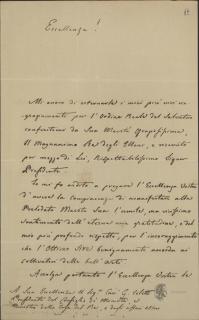 Eccellenza!
Mi onoro di esternarle i miei più vivi rin-
graziamenti per l'Ordine Reale del Salvatore
conferitomi da Sua Maestà Graziosissima,
Il Magnanimo Re degli Elleni, e ricevuto
per mezzo di Lei, Rispettabilissimo Signor
Presidente.
Io mi fo ardito a pregare l'Eccellenza Vostra
d'avere la compiacenza di manifestare alla
Prelodata Maestà Sua l'umile, ma vivissimo
sentimento dell'eterna mia gratitudine, e del
mio più profondo rispetto, per l'incoraggiamento
che l'Ottimo Sire benignamente accorda ai
cultori delle belle arti.
Accolga pertanto l'Eccellenza Vostra le
A Sua Eccellenza il Sig. Cav. G. Coletti
Presidente del Consiglio dei Ministri, e
Ministro della Casa del Re, e degli affari esteri